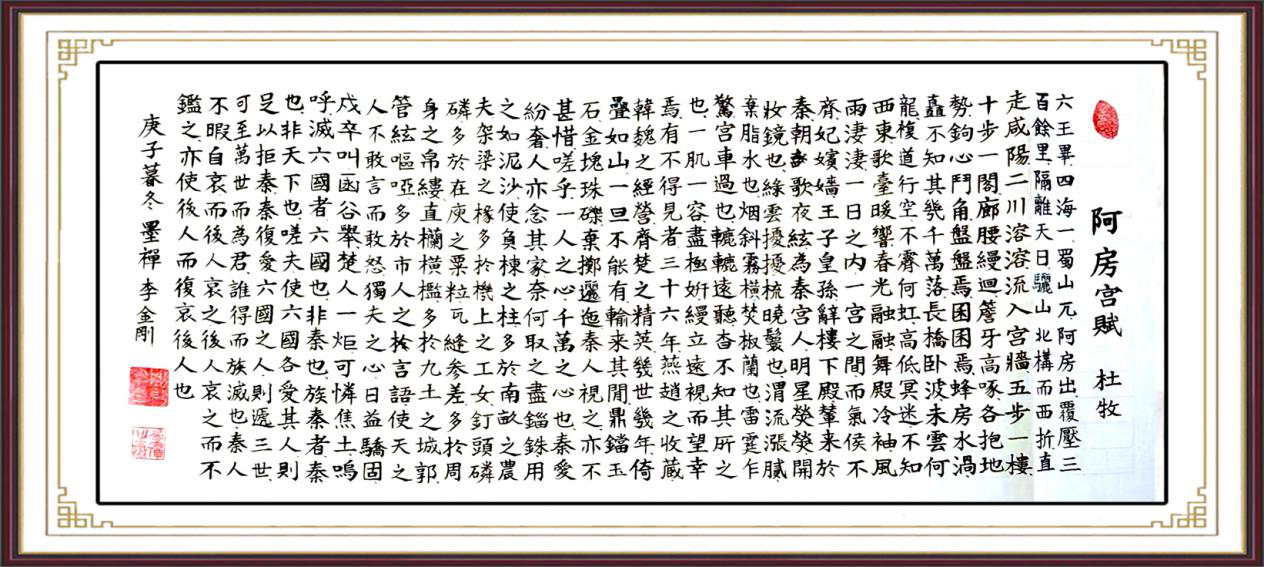 阿房宫賦 杜牧
六王畢四海一蜀山兀阿房出覆壓三
百餘里隔離天日驪山北構而西折直
走咸陽二川溶溶流入宫牆五步一樓
十步一閣廊腰縵迴簷牙高啄各抱地
勢鉤心鬥角盤盤焉囷囷焉蜂房水渦
矗不知其幾千萬落長橋卧波未雲何
龍複道行空不霽何虹高低冥迷不知
西東歌臺暖響春光融融舞殿冷袖風
雨淒淒一日之内一宫之間而氣侯不
齊妃嬪嬙王子皇孫辭樓下殿輦来於
秦朝歌夜絃為秦宮人明星熒熒開
妝鏡也綠雲擾擾梳曉鬟也渭流漲膩
棄脂水也烟斜霧橫焚椒蘭也雷霆乍
驚宮車過也轆轆遠聽杳不知其所之
也一肌一容盡極妍縵立遠視而望幸
焉有不得見者三十六年燕趙之收蔵
韓魏之經營齊楚之精英幾世幾年倚
疊如山一旦不能有輸來其間鼎鐺玉
石金塊珠礫棄擲邐迤秦人視之亦不
甚惜嗟乎一人之心千萬之心也秦愛
紛奢人亦念其家奈何取之盡錙銖用
之如泥沙使負棟之柱多於南畝之農
夫架梁之椽多於機上之工女釘頭磷
磷多於在庾之粟粒瓦縫参差多於周
身之帛縷直欄橫檻多於九土之城郭
管絃嘔啞多於市人之言語使天之
人不敢言而敢怒獨夫之心日益驕固
戍卒叫函谷舉楚人一炬可憐焦土嗚
呼滅六國者六國也非秦也族秦者秦
也非天下也嗟夫使六國各愛其人則
足以拒秦秦復愛六國之人則遞三世
可至萬世而為君誰得而族滅也秦人
不暇自哀而後人哀之後人哀之而不
鑑之亦使後人而復哀後人也
庚子暮冬 墨禪 李金剛